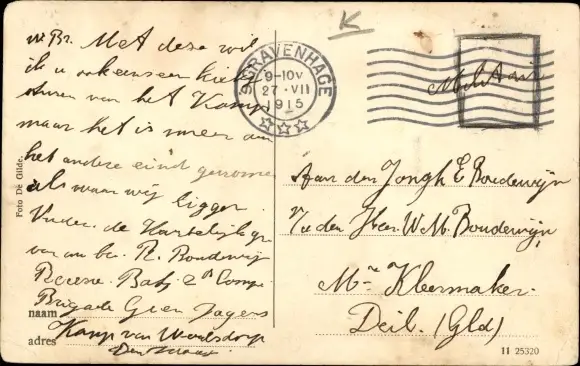 W Br. Met deze wil
ik u ook eens een kiekje
sturen van het Kamp
maar het is meer aan
het andere eind genomen
als waar wij liggen.
Verder de Hartelijke gr
van uw br. R. Boudewijn
Reserve. Bat. 2e Comp.
Brigade Gren Jagers
naam
Kamp van
adres
Foto De Gilde.
K
'S GRAVENHAGE
9-10V
27 · VII
1915
Militair
Aan den Jongh E Boudewijn
p/a den Heer W. M. Boudewijn,
Mr Kleermaker.
Deil. (Gld)
11 25320